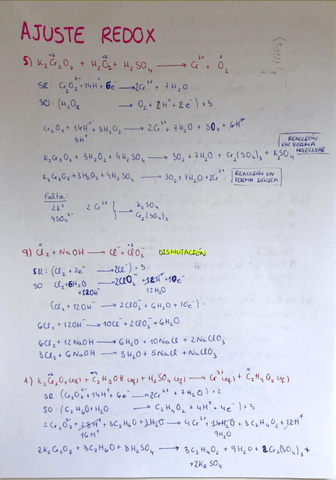 AJUSTE REDOX
5) K₂Cr₂O₇ + H₂O₂ + H₂SO₄ → Cr³⁺ + O₂
SR: Cr₂O₇²⁻ + 14H⁺ + 6e⁻ → 2Cr³⁺ + 7H₂O
SO: (H₂O₂ → O₂ + 2H⁺ + 2e⁻) · 3
Cr₂O₇²⁻ + 14H⁺ + 3H₂O₂ → 2Cr³⁺ + 7H₂O + 3O₂ + 6H⁺
8H⁺
REACCIÓN EN FORMA MOLECULAR
K₂Cr₂O₇ + 3H₂O₂ + 4H₂SO₄ → 3O₂ + 7H₂O + Cr₂(SO₄)₃ + K₂SO₄
K₂Cr₂O₇ + 3H₂O₂ + 4H₂SO₄ → 3O₂ + 7H₂O + 2Cr³⁺
REACCIÓN EN FORMA IÓNICA
Falta:
2K⁺
4SO₄²⁻
2Cr³⁺ } → K₂SO₄
→ Cr₂(SO₄)₃
9) Cl₂ + NaOH → Cl⁻ + ClO₃⁻ DISMUTACIÓN
SR: (Cl₂ + 2e⁻ → 2Cl⁻) · 5
SO Cl₂ + 6H₂O → 2ClO₃⁻ + 12H⁺ + 10e⁻
+12OH⁻ 12H₂O
(Cl₂ + 12OH⁻ → 2ClO₃⁻ + 6H₂O + 10e⁻) ·
6Cl₂ + 12OH⁻ → 10Cl⁻ + 2ClO₃⁻ + 6H₂O
6Cl₂ + 12NaOH → 6H₂O + 10NaCl + 2NaClO₃
3Cl₂ + 6NaOH → 3H₂O + 5NaCl + NaClO₃
1) K₂Cr₂O₇(aq) + C₂H₅OH(aq) + H₂SO₄(aq) → Cr³⁺(aq) + C₂H₄O₂(aq)
SR: (Cr₂O₇²⁻ + 14H⁺ + 6e⁻ → 2Cr³⁺ + 7H₂O) · 2
SO: (C₂H₆O + H₂O → C₂H₄O₂ + 4H⁺ + 4e⁻) · 3
2Cr₂O₇²⁻ + 28H⁺ + 3C₂H₆O + 3H₂O → 4Cr³⁺ + 14H₂O + 3C₂H₄O₂ + 12H⁺
16H⁺ 9H₂O
2K₂Cr₂O₇ + 3C₂H₆O + 8H₂SO₄ → 3C₂H₄O₂ + 9H₂O + 2Cr₂(SO₄)₃ +
+2K₂SO₄